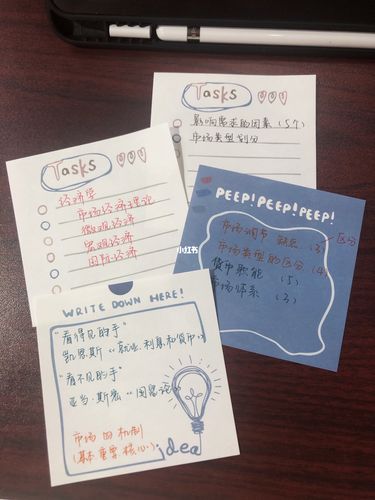 Tasks
影响需求的因素(5个)
市场类型划分
Tasks
经济学
市场经济理论
微观经济
宏观经济
国防经济
小红书
PEEP!PEEP!PEEP!
市场调节 缺点(3)区分
市场类型的区分(4)
货币职能(5)
市场体系(3)
WRITE DOWN HERE!
"看得见的手"
凯恩斯《就业、利息和货币》
"看不见的手"
亚当·斯密《国富论》
市场 四 机制
(基本 重要 核心)
idea